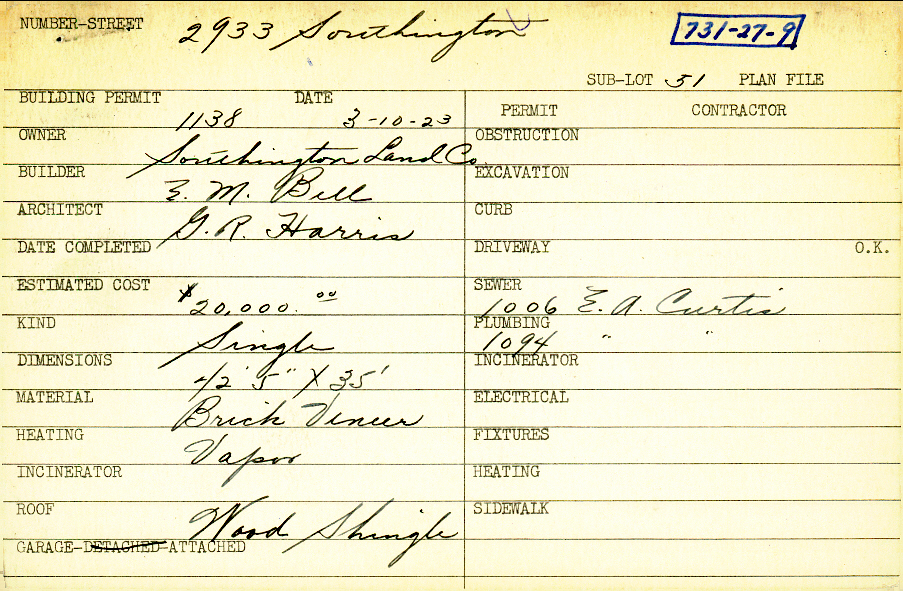 NUMBER-STREET 2933 Southington 731-27-9
SUB-LOT 51 PLAN FILE
BUILDING PERMIT 1138 DATE 3-10-23 PERMIT CONTRACTOR
OWNER Southington Land Co. OBSTRUCTION
BUILDER E. M. Bell EXCAVATION
ARCHITECT G. R. Harris CURB
DATE COMPLETED DRIVEWAY O.K.
ESTIMATED COST $20,000.00 SEWER 1006 E. A. Curtis
KIND Single PLUMBING 1094 " "
DIMENSIONS 42' 5" X 35' INCINERATOR
MATERIAL Brick Veneer ELECTRICAL
HEATING Vapor FIXTURES
INCINERATOR HEATING
ROOF Wood Shingle SIDEWALK
GARAGE-DETACHED-ATTACHED